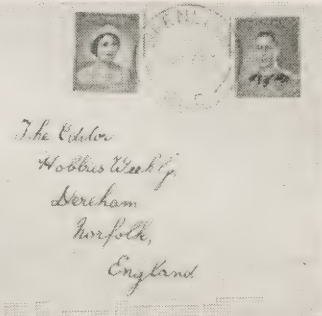 The Editor
Hobbies Weekly,
Dereham
Norfolk,
England